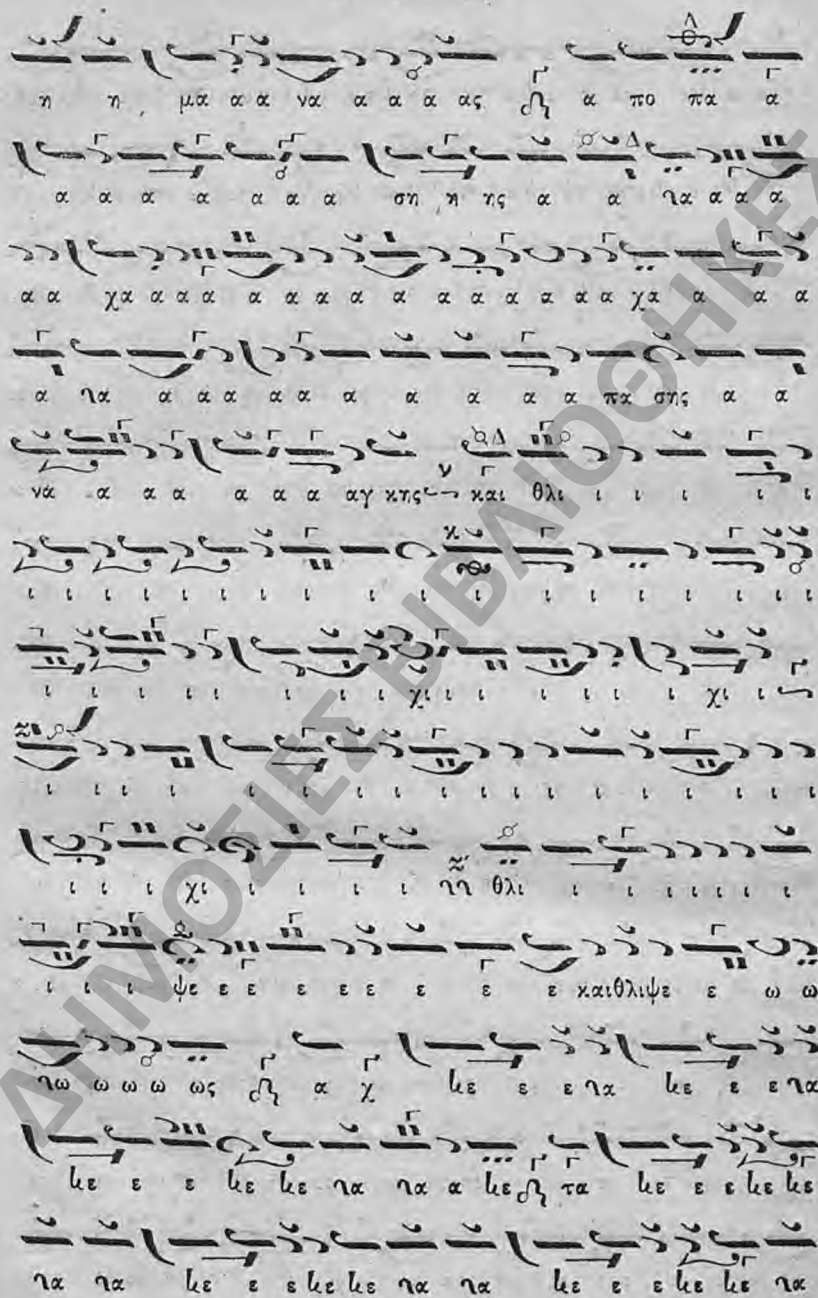 η η μα α α να α α α ας α πο πα α
α α α α α α α ση η ης α α γα α α α
α α χα α α α α α α α α α α α α α α χα α α α
α γα α α α α α α α α α α α πα σης α α
να α α α α α α αγ κης και θλι ι ι ι ι ι
ι ι ι ι ι ι ι ι ι ι ι ι ι ι ι ι ι ι
ι ι ι ι ι ι ι ι ι χι ι ι ι ι ι ι χι ι
ι ι ι ι ι ι ι ι ι ι ι ι ι ι ι ι ι ι
ι ι ι χι ι ι ι ι ι θλι ι ι ι ι ι ι ι ι
ι ι ι ψε ε ε ε ε ε ε ε ε και θλι ψε ε ω ω
γω ω ω ω ως α χ κε ε ε γα κε ε ε γα
κε ε ε κε κε γα γα α κε τα κε ε ε κε κε
γα γα κε ε ε κε κε γα γα κε ε ε κε κε γα
ΔΗΜΟΣΙΕΣ ΒΙΒΛΙΟΘΗΚΕΣ